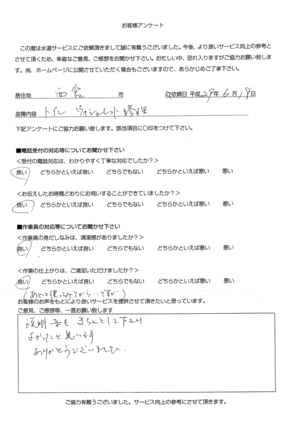 お客様アンケート
この度は水道サービスにご依頼頂きまして誠に有難うございます。今後、より良いサービス向上の参考と
させて頂くため、率直なご意見、ご感想をお聞かせ下さい。お忙しい中、恐れ入りますがご協力お願い致し
ます。尚、ホームページに公開させていただく場合もございますので、あらかじめご了承下さい。
居住地 西宮 市 ご依頼日 平成 29年 6月 19日
故障内容 トイレ ウォシュレット 修理
下記アンケートにご協力お願い致します。該当項目に○印をつけて下さい。
■電話受付の対応等についてお聞かせ下さい
<受付の電話対応は、わかりやすく丁寧な対応でしたか?>
良い どちらかといえば良い どちらでもない どちらかといえば悪い 悪い
<お伝えしたお時間どおりにお伺いすることができていましたか?>
良い どちらかといえば良い どちらでもない どちらかといえば悪い 悪い
■作業員の対応等についてお聞かせ下さい
<作業員の身だしなみは、清潔感がありましたか?>
良い どちらかといえば良い どちらでもない どちらかといえば悪い 悪い
<作業の仕上がりは、ご満足いただけましたか?>
良い どちらかといえば良い どちらでもない どちらかといえば悪い 悪い
(あとは使ってみてから…ですが)
お客様のお声をもとにより良いサービスを提供させて頂きたいと思っています。
ご意見、ご感想等、一言お願い致します
説明もきちんとして下さり
よかったと思います
ありがとうございました。
ご協力有難うございました。サービス向上の参考にさせて頂きます。